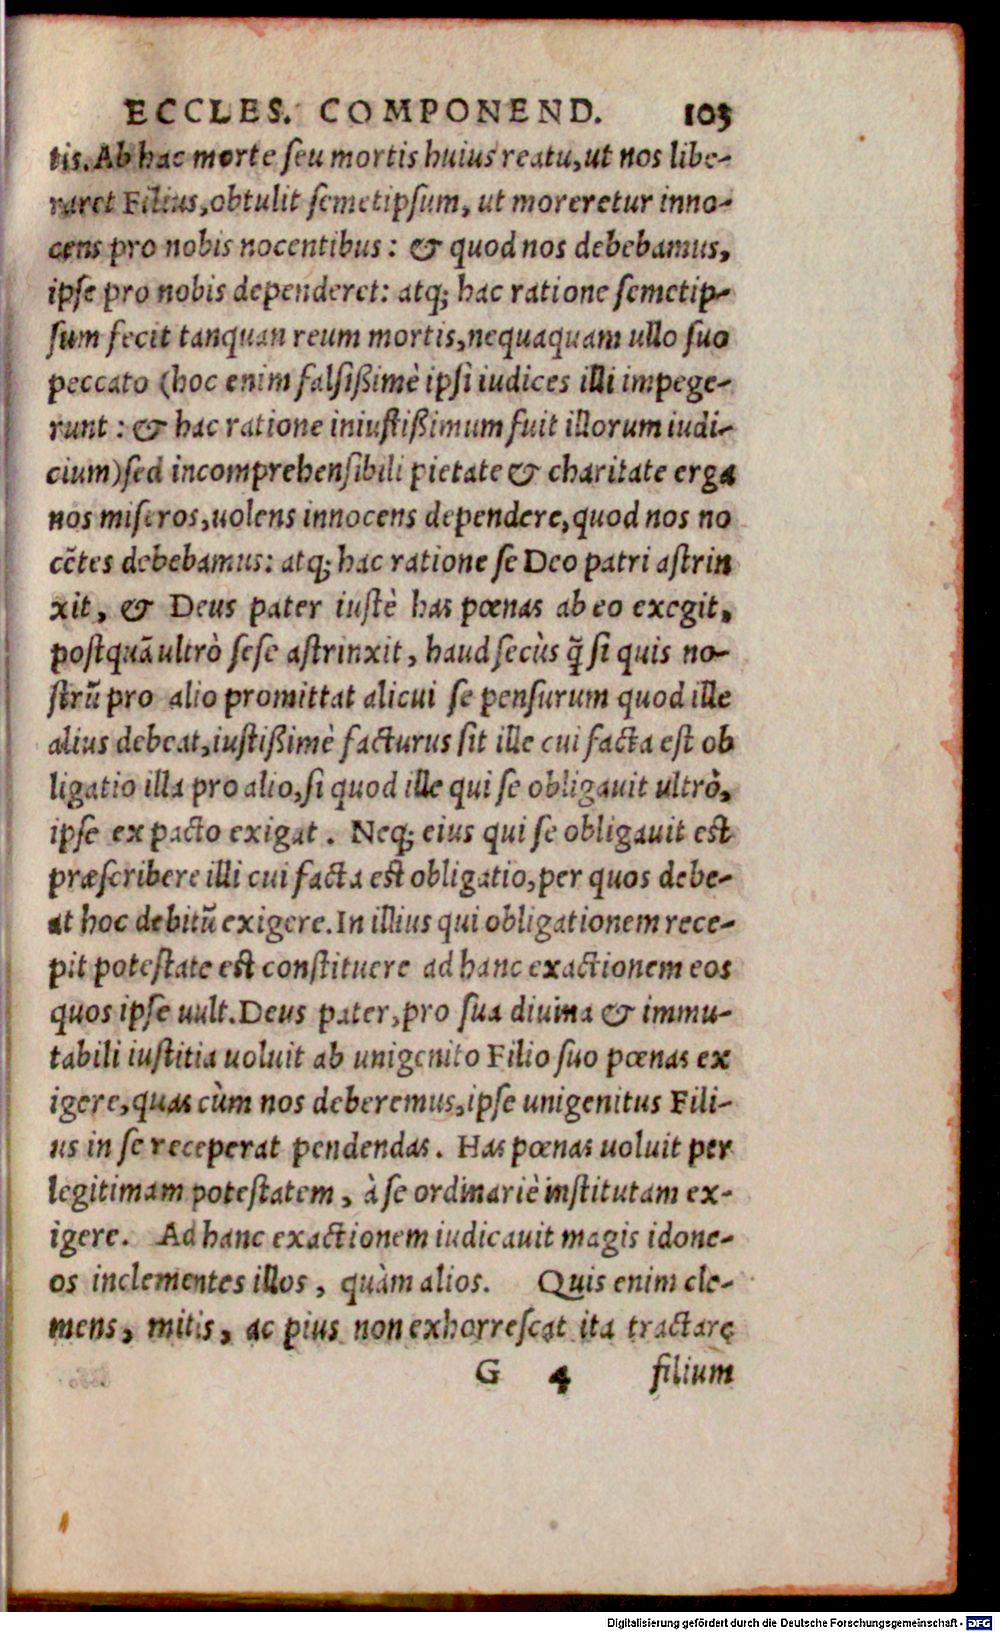 ECCLES. COMPONEND. 103
tis. Ab hac morte ſeu mortis huius reatu, ut nos libe-
raret Filius, obtulit ſemetipſum, ut moreretur inno-
cens pro nobis nocentibus: & quod nos debebamus,
ipſe pro nobis dependeret: atq; hac ratione ſemetip-
ſum fecit tanquan reum mortis, nequaquam ullo ſuo
peccato (hoc enim falſißimè ipſi iudices illi impege-
runt: & hac ratione iniuſtißimum fuit illorum iudi-
cium) ſed incomprehenſibili pietate & charitate erga
nos miſeros, uolens innocens dependere, quod nos no
cẽtes debebamus: atq; hac ratione ſe Deo patri aſtrin
xit, & Deus pater iuſtè has pœnas ab eo exegit,
poſtquã ultrò ſeſe aſtrinxit, haud ſecùs q̃ ſi quis no-
ſtrũ pro alio promittat alicui ſe penſurum quod ille
alius debeat, iuſtißimè facturus ſit ille cui facta eſt ob
ligatio illa pro alio, ſi quod ille qui ſe obligauit ultrò,
ipſe ex pacto exigat. Neq; eius qui ſe obligauit eſt
præſcribere illi cui facta eſt obligatio, per quos debe-
at hoc debitũ exigere. In illius qui obligationem rece-
pit poteſtate eſt conſtituere ad hanc exactionem eos
quos ipſe uult. Deus pater, pro ſua diuina & immu-
tabili iuſtitia uoluit ab unigenito Filio ſuo pœnas ex
igere, quas cùm nos deberemus, ipſe unigenitus Fili-
us in ſe receperat pendendas. Has pœnas uoluit per
legitimam poteſtatem, à ſe ordinariè inſtitutam ex-
igere. Ad hanc exactionem iudicauit magis idone-
os inclementes illos, quàm alios. Quis enim cle-
mens, mitis, ac pius non exhorreſcat ita tractare
G 4 filium
Digitalisierung gefördert durch die Deutsche Forschungsgemeinschaft - DFG